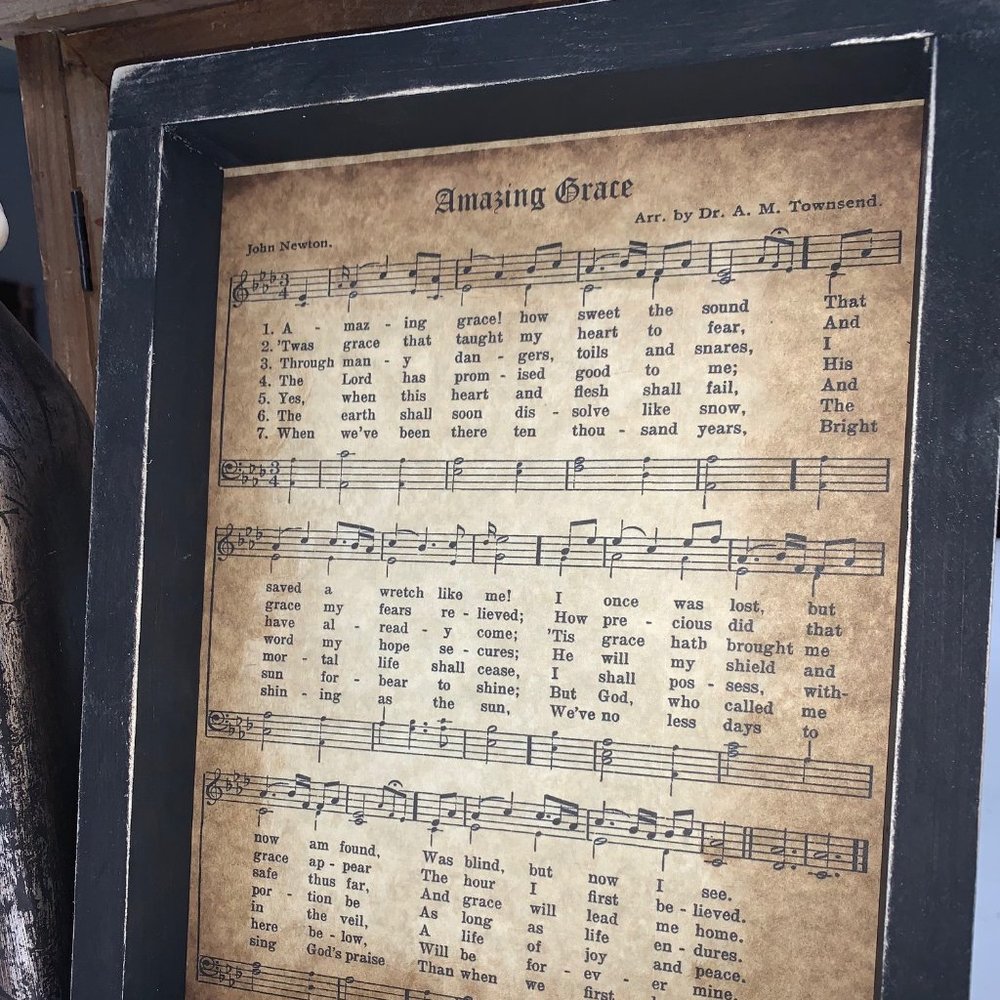 Amazing Grace
Arr. by Dr. A. M. Townsend.
John Newton.
3 4
1. A - maz - ing grace! how sweet the sound That
2. 'Twas grace that taught my heart to fear, And
3. Through man - y dan - gers, toils and snares, I
4. The Lord has prom - ised good to me; His
5. Yes, when this heart and flesh shall fail, And
6. The earth shall soon dis - solve like snow, The
7. When we've been there ten thou - sand years, Bright
3 4
saved a wretch like me! I once was lost, but
grace my fears re - lieved; How pre - cious did that
have al - read - y come; 'Tis grace hath brought me
word my hope se - cures; He will my shield and
mor - tal life shall cease, I shall pos - sess, with-
sun for - bear to shine; But God, who called me
shin - ing as the sun, We've no less days to
now am found, Was blind, but now I see.
grace ap - pear The hour I first be - lieved.
safe thus far, And grace will lead me home.
por - tion be As long as life en - dures.
in the veil, A life of joy and peace.
here be - low, Will be for - ev - er mine.
sing God's praise Than when we first